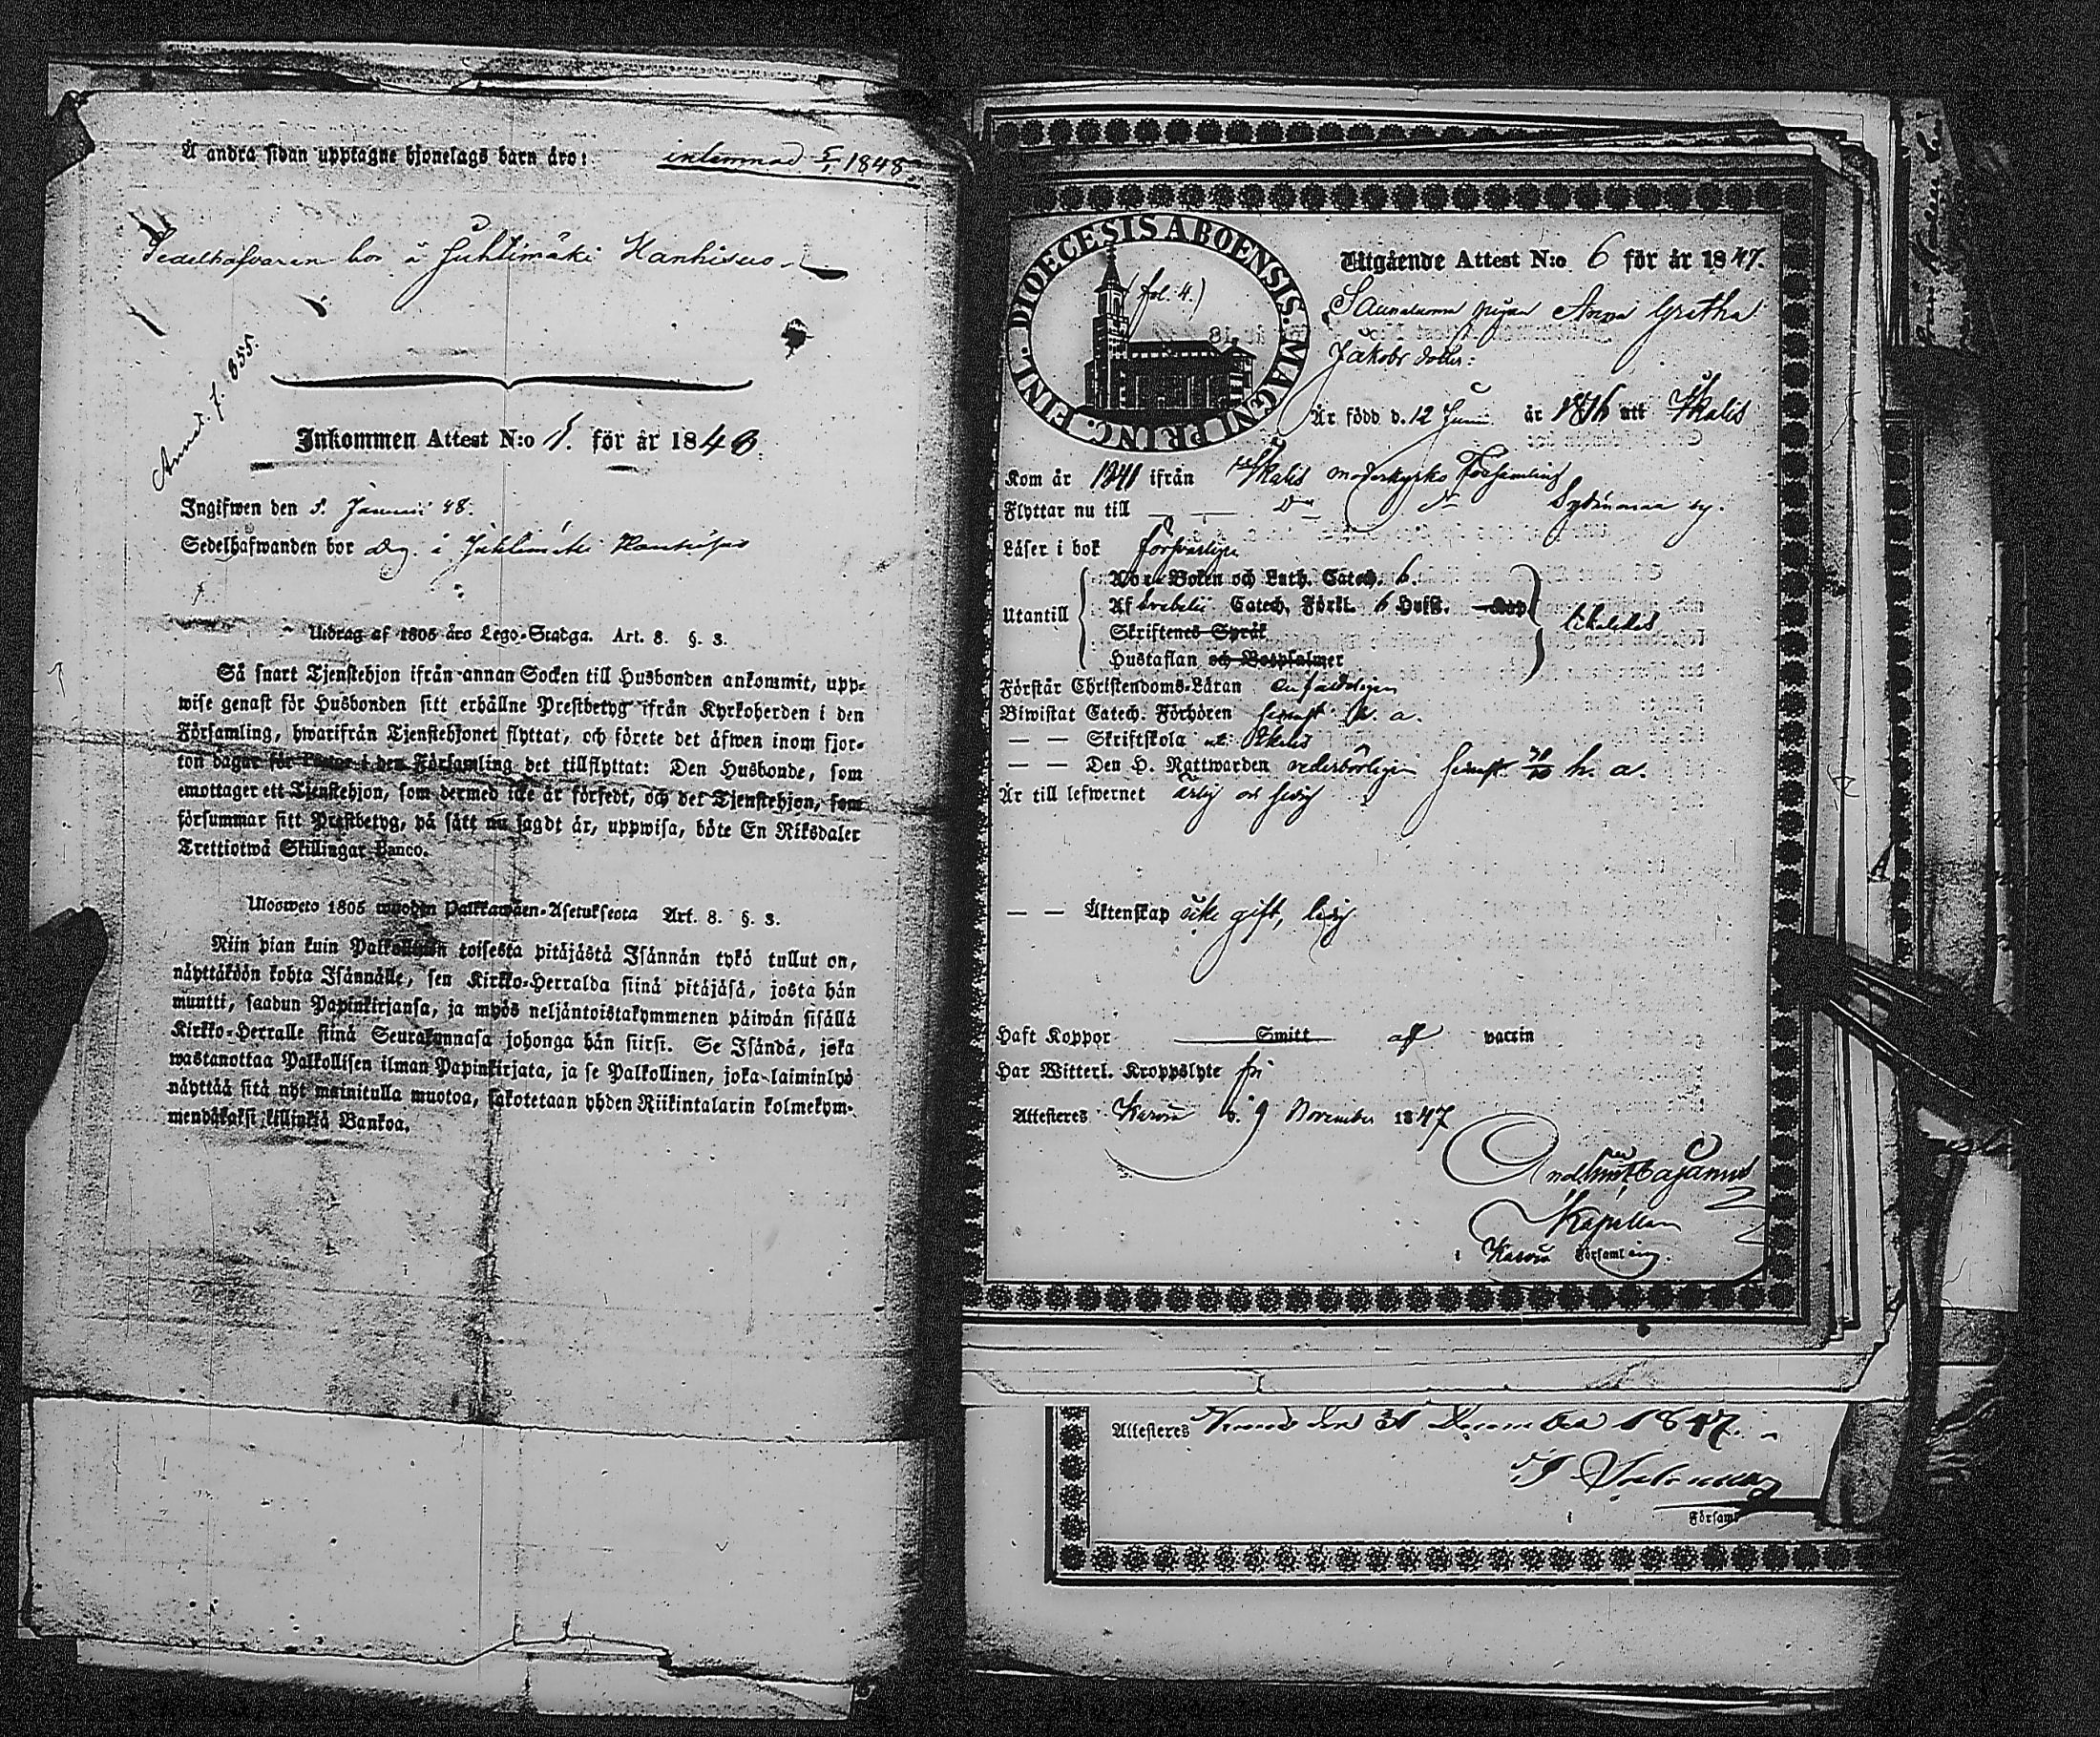 Å andra sidan upptagne hjonelags barn äro:
inlemnad 5/1 1848.
Sedelhafvaren bor å Juhtimäki Hanhisuo
Annot. f. 855.
Inkommen Attest N:o 1. för år 1848.
Ingifwen den 5. Januari 48.
Sedelhafwanden bor å Juhtimäki Hanhisuo
Utdrag af 1805 års Lego-Stadga. Art. 8. §. 3.
Så snart Tjenstehjon ifrån annan Socken till Husbonden ankommit, upp-
wise genast för Husbonden sitt erhållne Prestbetyg ifrån Kyrkoherden i den
Församling, hwarifrån Tjenstehjonet flyttat, och förete det äfwen inom fjor-
ton dagar för Pastor i den Församling det tillflyttat: Den Husbonde, som
emottager ett Tjenstehjon, som dermed icke är försedt, och det Tjenstehjon, som
försummar sitt Prestbetyg, på sätt nu sagdt är, uppwisa, böte En Riksdaler
Trettiotwå Skillingar Banco.
Ulosweto 1805 wuoden Palkkawäen-Asetuksesta Art. 8. §. 3.
Niin pian kuin Palkollinen toisesta pitäjästä Isännän tykö tullut on,
näyttäköön kohta Isännälle, sen Kirkko-Herralda siinä pitäjäsä, josta hän
muutti, saadun Papinkirjansa, ja myös neljäntoistakymmenen päiwän sisällä
Kirkko-Herralle siinä Seurakunnasa johonga hän siirsi. Se Isändä, joka
wastanottaa Palkollisen ilman Papinkirjata, ja se Palkollinen, joka laiminlyö
näyttää sitä nyt mainitulla muotoa, sakotetaan yhden Riikintalarin kolmekym-
mendäkaksi killinkiä Bankoa.
DIOECESIS ABOENSIS. MAGNI PRINC. FINL.
(fol. 4.)
Utgående Attest N:o 6 för år 1847.
pigan Anna Gretha
Jakobs dotter:
Är född d. 12 Juni år 1816 att Ikalis
Kom år 1841 ifrån Ikalis moderkyrko Församling
Flyttar nu till — — Do do Sydänmaa by.
Läser i bok försvarligen
Utantill
Abc-Boken och Luth. Catech. 6.
Af Svebelii Catech. Förkl. 6 Hufst.
Skriftenes Språk
Hustaflan och Botpsalmer
Förstår Christendoms-Läran enfaldeligen
Biwistat Catech. Förhören senast h. a.
— — Skriftskola uti Ikalis
— — Den H. Nattwarden vederbörligen senast h. a.
Är till lefwernet ärlig och sedig
— — Äktenskap icke gift, ledig
Haft Koppor Smitt af vaccin
Har Witterl. Kroppslyte fri
Attesteres Karvia d. 9 November 1847
Kapellan
i Karvia Församling.
Attesteres den 31 December 1847.
i Församl